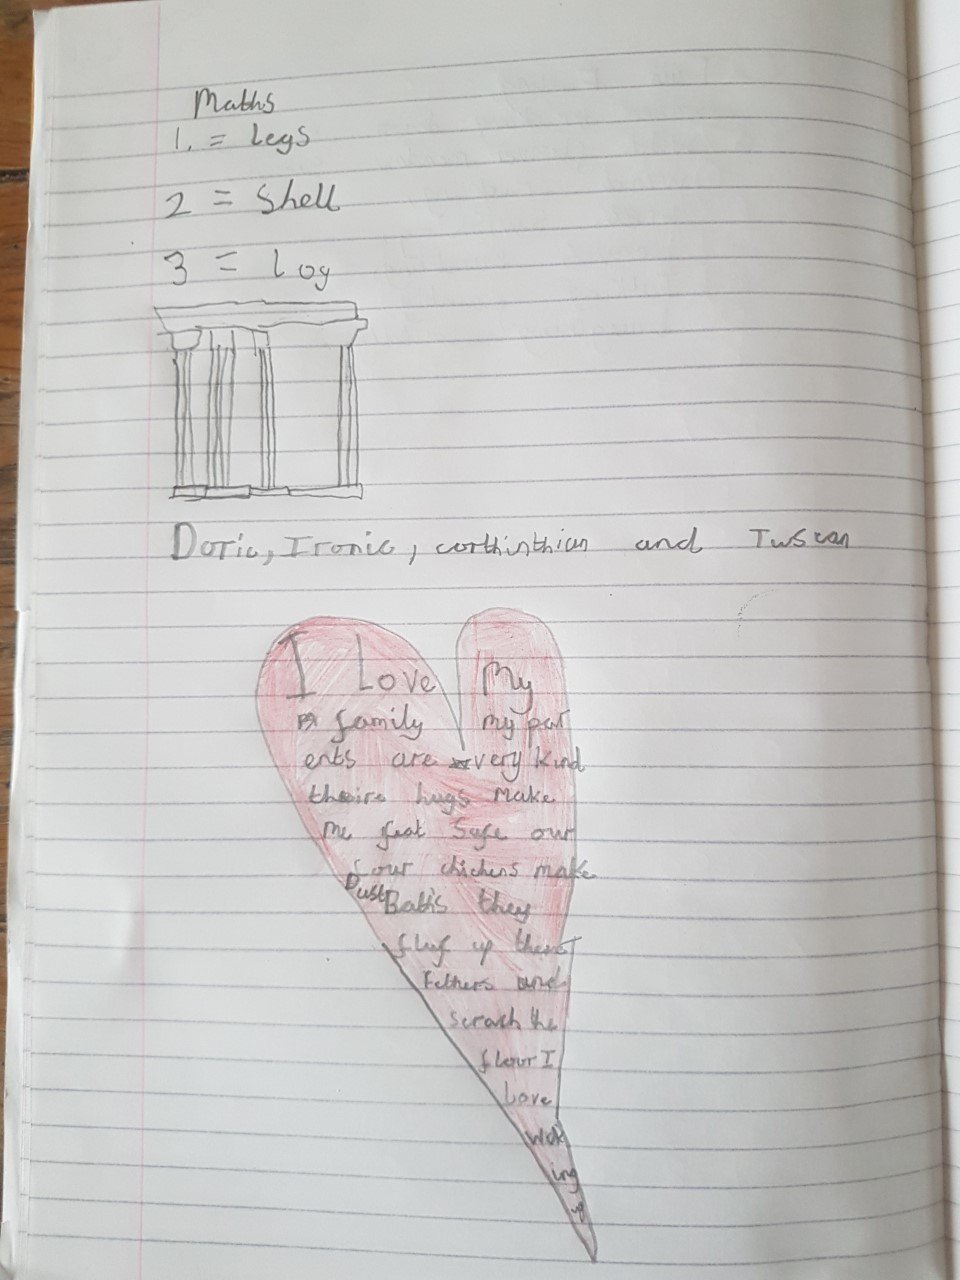 Maths
1. = Legs
2 = Shell
3 = Log
Doric, Ironic, corthinthian and Tuscan
I Love My
family my par
ents are very kind
theire hugs make
me feat Safe our
four chickens make
Dust Baths they
fluf up there
Fethers and
scrach the
flour I
Love
Wok
ing